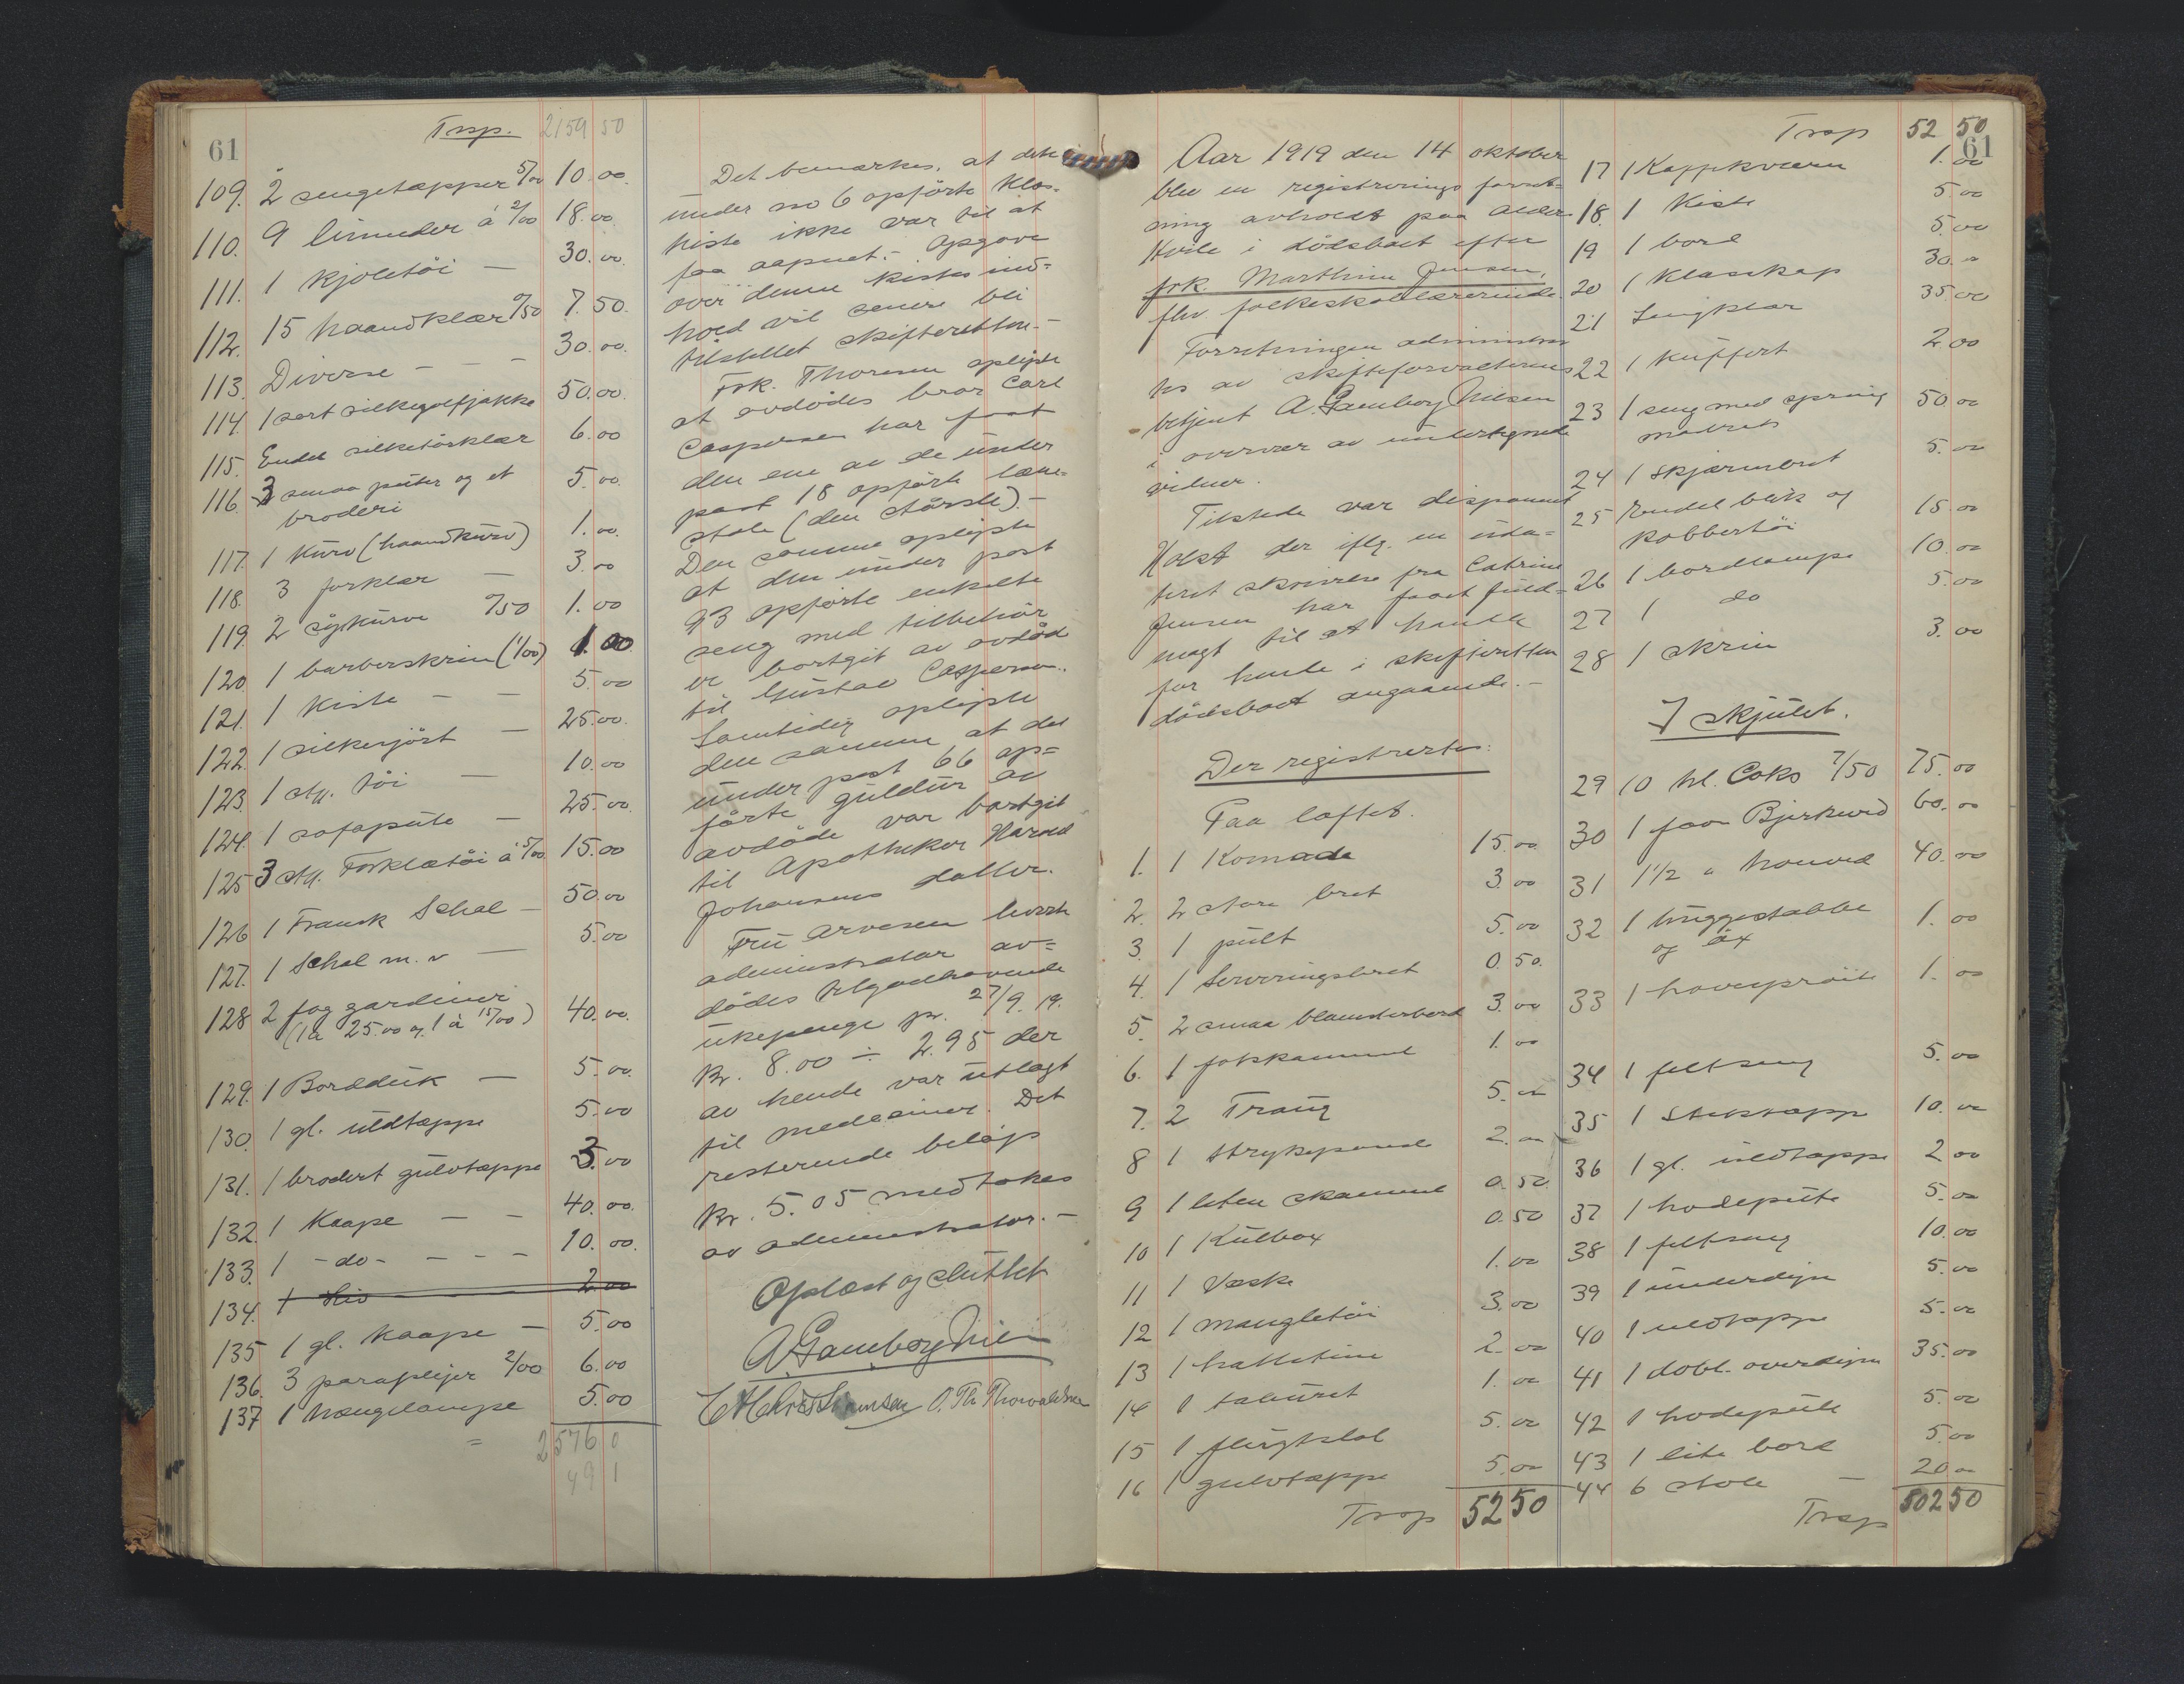 61
Trsp. 2159 50
109. 2 sengetæpper 5/00 10.00.
110. 9 linneder á 2/00 18.00
111. 1 kjoletöi — 30.00.
112. 15 haandklær 0/50 7.50.
113. Diverse - - - 30.00.
114. 1 sort silkegolfjakke 50.00.
115. Endel silketörklær 6.00
116. 3 smaa puter og et 5.00.
broderi
117. 1 Kurv (haandkurv) 1.00.
118. 3 forklær — 3.00
119. 2 sykurve 0/50 1.00
120 1 barberskrin (1/00) 1.00.
121. 1 Kiste - - 5.00
122. 1 silkeskjört — 25.00.
123. 1 stk. töi — 10.00
124. 1 sofapute — 25.00.
125 3 stk. Forklætöi á 5/00. 15.00
126 1 Fransk Schal — 50.00
127. 1 Schal m. v — 5.00
128 2 fag gardiner
(1 á 25.00 og 1 á 15/00) 40.00.
129. 1 Bordduk — 5.00.
130. 1 gl. uldtæppe 5.00
131. 1 brodert gulvtæppe 3.00
132. 1 Kaape - - 40.00.
133. 1 -do- - - - 10.00.
134. 1 Liv 2.00
135 1 gl. kaape — 5.00
136. 3 paraplyer 2/00 6.00
137 1 hængelampe 5.00
= 2576 0
49 1
Det bemærkes, at den
under no 6 opförte klæs-
kiste ikke var til at
faa aapnet.- Opgave
over denne kistes ind-
hold vil senere bli
tilstillet skifteretten.-
Frk. Thoresen oplyste
at avdödes bror Carl
Caspersen har faat
den ene av de under
post 18 opförte læne-
stole (den störste).-
Den samme oplyste
at den under post
93 opförte enkelte
seng med tilbehör
er bortgit av avdöd
til Gustav Caspersen..
Samtidig oplyste
den samme at det
under post 66 op=
förte guldur av
avdöde var bortgit
til Apotheker Harald
Johansens datter.
Fru Arvesen leverte
administrator av=
dödes tilgodehavende
ukepenge pr. 27/9.19.
Kr. 8.00 ÷ 2.95 der
av hende var utlagt
til medeciner. Det
resterende belöp
Kr. 5.05 medtokes
av administrator.-
Oplæst og sluttet
A. Gamborg Nilsen
O. Th. Thorvaldsen
Aar 1919 den 14 oktober
blev en registrerings forret=
ning avholdt paa Alders
Hvile i dödsboet efter
frk. Marthine Jensen,
fhv. folkeskolelærerinde.
Forretningen administrer
tes av skifteforvalterens
betjent A. Gamborg Nilsen
i overvær av undertegnede
vidner.
Tilstede var disponent
Holst der iflg. en uda=
teret skrivelse fra Catrine
Jensen har faaet fuld=
magt til at handle
for hende i skifteretten
dödsboet angaaende.-
Der registrertes:
Paa loftet.
1. 1 Komode 15.00
2. 2 store bret 3.00
3. 1 pult 5.00
4. 1 Serveringsbret 0.50.
5. 2 smaa blomsterbord 3.00
6. 1 fotskammel 1.00
7. 2 Traug 5.00
8 1 Strykepande 2.00
9 1 liten skammel 0.50.
10 1 Kulbox 0.50
11 1 Væske 1.00
12 1 mangletöi 3.00
13 1 hattetine 2.00
14 1 taburet 1.00
15 1 flugtstol 5.00
16 1 gulvtæppe 5.00
Trsp 52 50
Trsp 52 50
61
17 1 Kaffekværn 1.00
18. 1 Kiste 5.00
19 1 bord 5.00
20 1 Klæsskap 30.00
21 Sengklær 35.00
22 1 Kuffert 2.00
23 1 seng med spring 50.00
madrets
24 1 skjærmbret 5.00
25 Endel blik og
Kobbertöi 15.00
26 1 bordlampe 10.00
27 1 do 5.00
28 1 skrin 3.00
I skjulet.
29 10 hl. Coks 7/50 75.00
30 1 favn Bjerkeved 60.00
31 1 1/2 " 40.00
32 1 huggestabbe 1.00
og öx
33 1 1.00
34 1 feltseng 5.00
35 1 Stktæppe 10.00
36 1 gl. uldtæppe 2.00
37 1 hodepute 5.00
38 1 feltseng 10.00
39 1 underdyne 5.00
40 1 uldtæppe 5.00
41 1 dobl. overdyne 35.00
42 1 hodepute 5.00
43 1 lite bord 5.00
44 6 stole — 20.00
Trsp 502 50